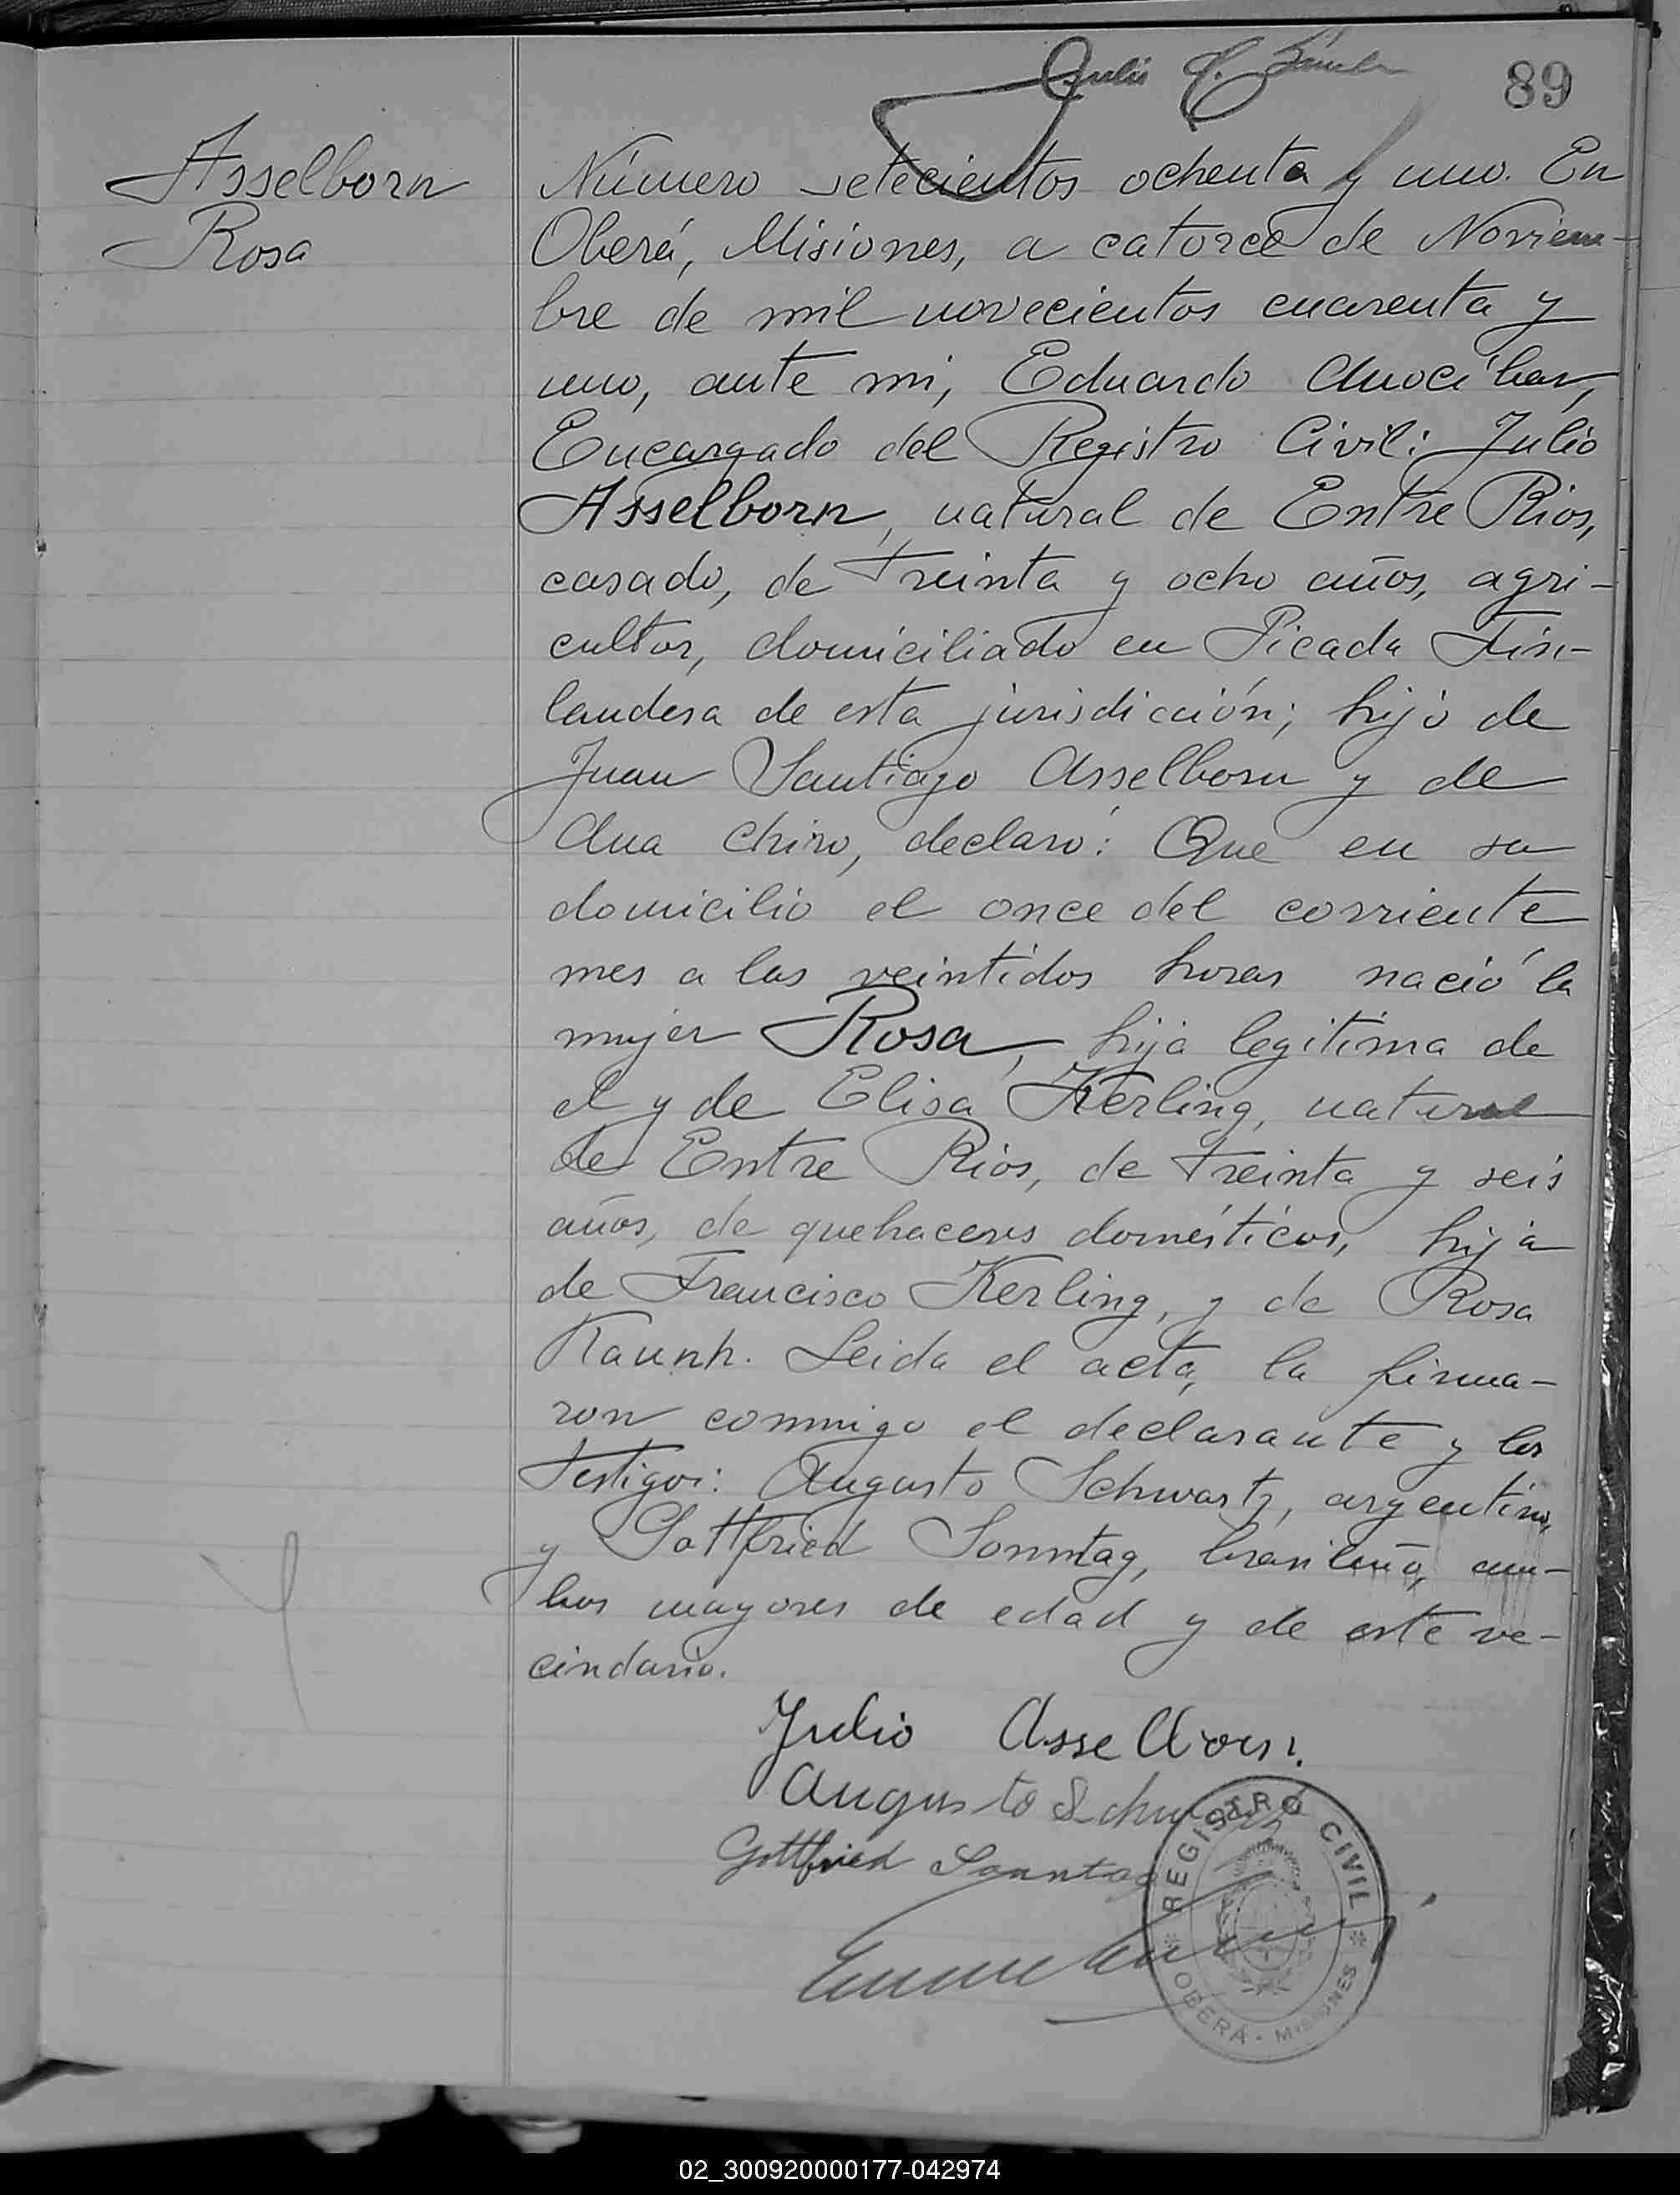 89
Asselborn
Rosa
Número setecientos ochenta y uno. En
Oberá, Misiones, a catorce de Noviem-
bre de mil novecientos cuarenta y
uno, ante mi, Eduardo Anocibar,
Encargado del Registro Civil: Julio
Asselborn, natural de Entre Rios,
casado, de treinta y ocho años, agri-
cultor, domiciliado en Picada Fin-
landesa de esta jurisdicción; hijo de
Juan Santiago Asselborn y de
Ana Chiro, declaró: Que en su
domicilio el once del corriente
mes a las veintidos horas nació la
mujer Rosa, hija legitima de
el y de Elisa Kerling, natural
de Entre Rios, de treinta y seis
años, de quehaceres domésticos, hija
de Francisco Kerling, y de Rosa
Raunh. Leida el acta, la firma-
ron conmigo el declarante y los
testigos: Augusto Schwartz, argentino,
y Gottfried Sonntag, brasileño, am-
bos mayores de edad y de este ve-
cindario.
Julio Asselborn.
Augusto
Gottfried Sonntag
REGISTRO CIVIL
OBERÁ - MISIONES
02_300920000177-042974